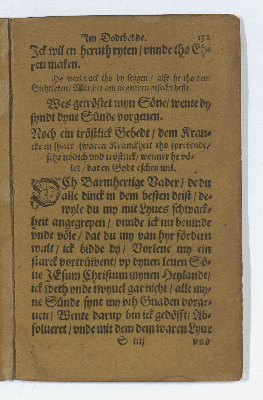 Im Dodtbedde. 132
Ick wil en heruth ryten / vnnde tho Eh-
ren maken.
Ho wert ock tho dy seggen / alse he tho dem
Gichtbröken / Matthei am negenden gesecht hefft.
Wes getröstet myn Söne / wente dy
syndt dyne Sünde vorgeuen.
Noch ein tröstlick Gebedt / dem Kran-
cken in syner swaren Kranckheit tho sprekende /
sehr nödich vnd tröstlick / wenner he vö-
let / dat en Godt eschen wil.
OCh Barmhertige Vader / de du
alle dinck in dem besten deist / de-
wyle du my mit Lyues schwack-
heit angegrepen / vnnde ick nu beuinde
vnde völe / dat du my van hyr fördern
wult / ick bidde dy / Vorlene my ein
starck vortrüwent / vp dynen leuen Sö-
ne JEsum Christum mynen Heylandt /
ick weth vnde twyuel gar nicht / alle my-
ne Sünde synt my vth Gnaden vorge-
uen / Wente darup bin ick gedöfft / Ab-
solueret / vnde mit dem dem waren Lyue
S iiij vnd